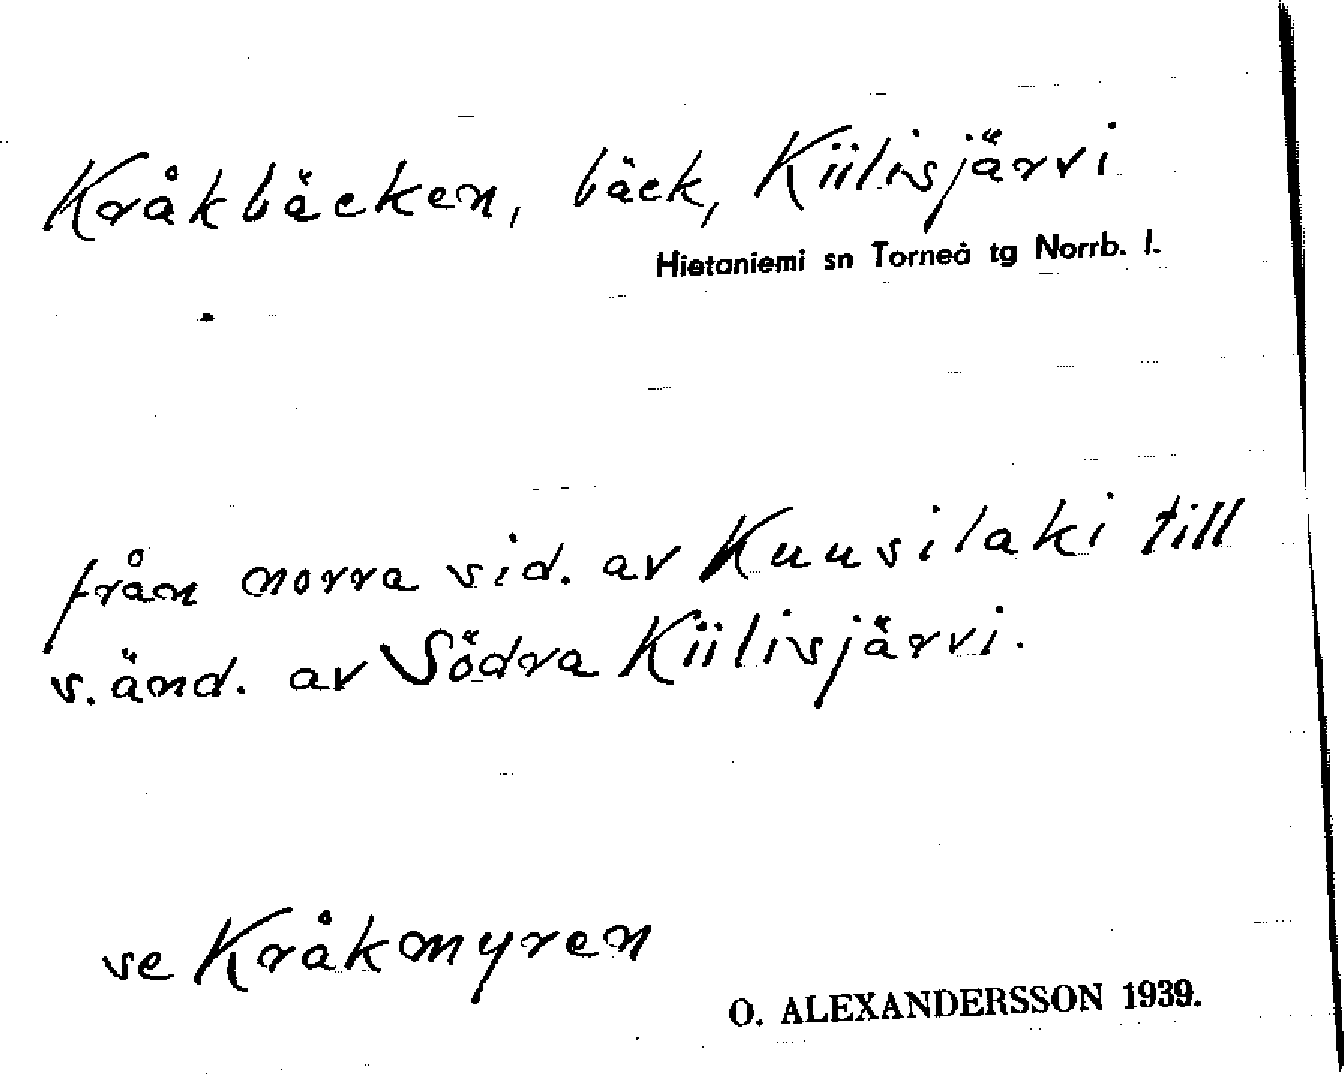 Kråkbäcken, bäck, Kiilisjärvi
Hietaniemi sn Torneå tg Norrb. l.
från norra sid. av Kuusilaki till
s. änd. av Södra Kiilisjärvi.
se Kråkmyren
O. ALEXANDERSSON 1939.